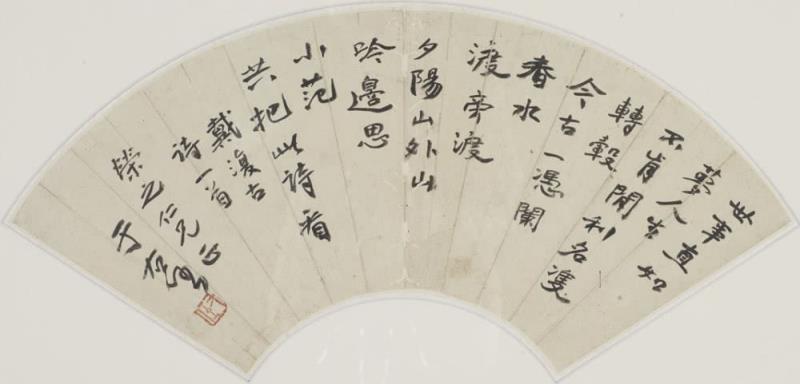 世事直如
夢人生
不肯閒利名雙
轉轂
今古一憑闌
春水
渡旁渡
夕陽山外山
吟邊思
小范
共把此詩看
戴復古
詩一首
榮之仁兄正
于右任